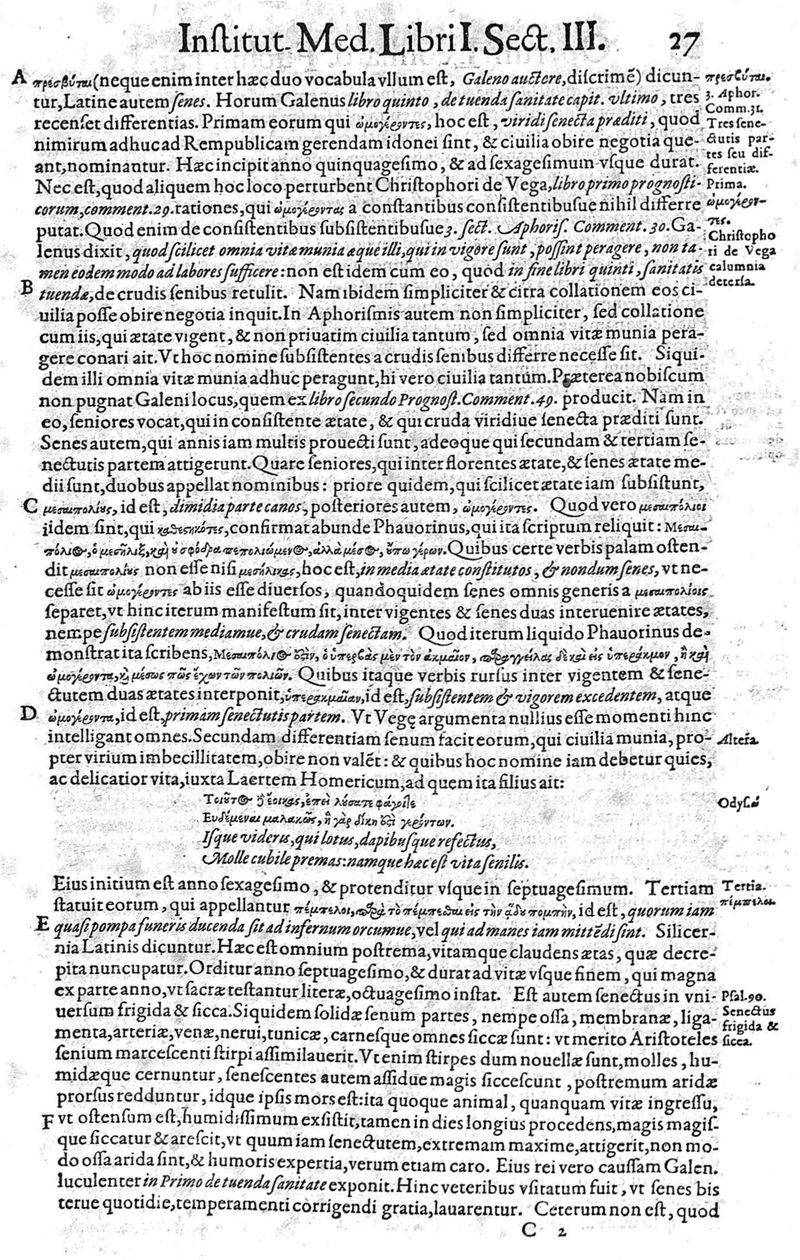 Institut. Med. Libri I. Sect. III. 27
A πρεσβύται (neque enim inter hæc duo vocabula vllum est, Galeno auctore, discrimē) dicun-
tur, Latine autem senes. Horum Galenus libro quinto, de tuenda sanitate capit. vltimo, tres
recenset differentias. Primam eorum qui ὠμογέροντες, hoc est, viridi senecta præditi, quod
nimirum adhuc ad Rempublicam gerendam idonei sint, & ciuilia obire negotia que-
ant, nominantur. Hæc incipit anno quinquagesimo, & ad sexagesimum vsque durat.
Nec est, quod aliquem hoc loco perturbent Christophori de Vega, libro primo prognosti-
corum, comment. 29. rationes, qui ὠμογέροντας a constantibus consistentibusue nihil differre
putat. Quod enim de consistentibus subsistentibusue 3. sect. Aphoris. Comment. 30. Ga-
lenus dixit, quod scilicet omnia vitæ munia æque illi, qui in vigore sunt, possint peragere, non ta-
men eodem modo ad labores sufficere: non est idem cum eo, quod in fine libri quinti, sanitatis
B tuendæ, de crudis senibus retulit. Nam ibidem simpliciter & citra collationem eos ci-
uilia posse obire negotia inquit. In Aphorismis autem non simpliciter, sed collatione
cum iis, qui ætate vigent, & non priuatim ciuilia tantum, sed omnia vitæ munia pera-
gere conari ait. Vt hoc nomine subsistentes a crudis senibus differre necesse sit. Siqui-
dem illi omnia vitæ munia adhuc peragunt, hi vero ciuilia tantum. Præterea nobiscum
non pugnat Galeni locus, quem ex libro secundo Prognost. Comment. 49. producit. Nam in
eo, seniores vocat, qui in consistente ætate, & qui cruda viridiue senecta præditi sunt.
Senes autem, qui annis iam multis prouecti sunt, adeoque qui secundam & tertiam se-
nectutis partem attigerunt. Quare seniores, qui inter florentes ætate, & senes ætate me-
dii sunt, duobus appellat nominibus: priore quidem, qui scilicet ætate iam subsistunt,
C μεσαιπολίους, id est, dimidia parte canos, posteriores autem, ὠμογέροντες. Quod vero μεσαιπόλιοι
iidem sint, qui καθεστηκότες, confirmat abunde Phauorinus, qui ita scriptum reliquit: Μεσαι-
πόλιος, ὁ μεσῆλιξ, καὶ οὐ σφόδρα πεπολιωμένος, ἀλλὰ μέσος, ὑπωγέρων. Quibus certe verbis palam osten-
dit μεσαιπολίους non esse nisi μεσήλικας, hoc est, in media ætate constitutos, & nondum senes, vt ne-
cesse sit ὠμογέροντες ab iis esse diuersos, quandoquidem senes omnis generis a μεσαιπολίοις
separet, vt hinc iterum manifestum sit, inter vigentes & senes duas interuenire ætates,
nempe subsistentem mediamue, & crudam senectam. Quod iterum liquido Phauorinus de-
monstrat ita scribens, Μεσαιπόλιός ἐστιν, ὁ ὑπερβὰς μὲν τὸν ἀκμαῖον, παραγγείλας δὲ καὶ εἰς ὑπέρακμον, ἢ καὶ
ὠμογέροντα, καὶ μέσως πῶς ἔχων τῶν πολιῶν. Quibus itaque verbis rursus inter vigentem & sene-
ctutem duas ætates interponit, ὑπερακμαῖαν, id est, subsistentem & vigorem excedentem, atque
D ὠμογέροντα, id est, primam senectutis partem. Vt Vegę argumenta nullius esse momenti hinc
intelligant omnes. Secundam differentiam senum facit eorum, qui ciuilia munia, pro-
pter virium imbecillitatem, obire non valēt: & quibus hoc nomine iam debetur quies,
ac delicatior vita, iuxta Laertem Homericum, ad quem ita filius ait:
Τοιούτῳ δὲ ἔοικας, ἐπεὶ λούσαιτο φάγοι τε
Εὑδέμεναι μαλακῶς, ἡ γὰρ δίκη ἐστὶ γερόντων.
Isque videris, qui lotus, dapibusque refectus,
Molle cubile premas: namque hæc est vita senilis.
Eius initium est anno sexagesimo, & protenditur vsque in septuagesimum. Tertiam
statuit eorum, qui appellantur πέμπελοι, παρὰ τὸ πέμπεσθαι εἰς τὴν ᾅδου πομπήν, id est, quorum iam
E quasi pompa funeris ducenda sit ad infernum orcumue, vel qui ad manes iam mittēdi sint. Silicer-
nia Latinis dicuntur. Hæc est omnium postrema, vitamque claudens ætas, quæ decre-
pita nuncupatur. Orditur anno septuagesimo, & durat ad vitæ vsque finem, qui magna
ex parte anno, vt sacræ testantur literæ, octuagesimo instat. Est autem senectus in vni-
uersum frigida & sicca. Siquidem solidæ senum partes, nempe ossa, membranæ, liga-
menta, arteriæ, venæ, nerui, tunicæ, carnesque omnes siccæ sunt: vt merito Aristoteles
senium marcescenti stirpi assimilauerit. Vt enim stirpes dum nouellæ sunt, molles, hu-
midæque cernuntur, senescentes autem assidue magis siccescunt, postremum aridæ
prorsus redduntur, idque ipsis mors est: ita quoque animal, quanquam vitæ ingressu,
F vt ostensum est, humidissimum exsistit, tamen in dies longius procedens, magis magis-
que siccatur & arescit, vt quum iam senectutem, extremam maxime, attigerit, non mo-
do ossa arida sint, & humoris expertia, verum etiam caro. Eius rei vero caussam Galen.
luculenter in Primo de tuenda sanitate exponit. Hinc veteribus vsitatum fuit, vt senes bis
terue quotidie, temperamenti corrigendi gratia, lauarentur. Ceterum non est, quod
C 2
πρεσβύται.
3. Aphor.
Comm. 31.
Tres sene-
ctutis par-
tes seu dif-
ferentiæ.
Prima.
ὠμογέρον-
τες.
Christopho
ri de Vega
calumnia
detersa.
Altera.
Odyss. ω
Tertia.
πέμπελοι.
Psal. 90.
Senectus
frigida &
sicca.